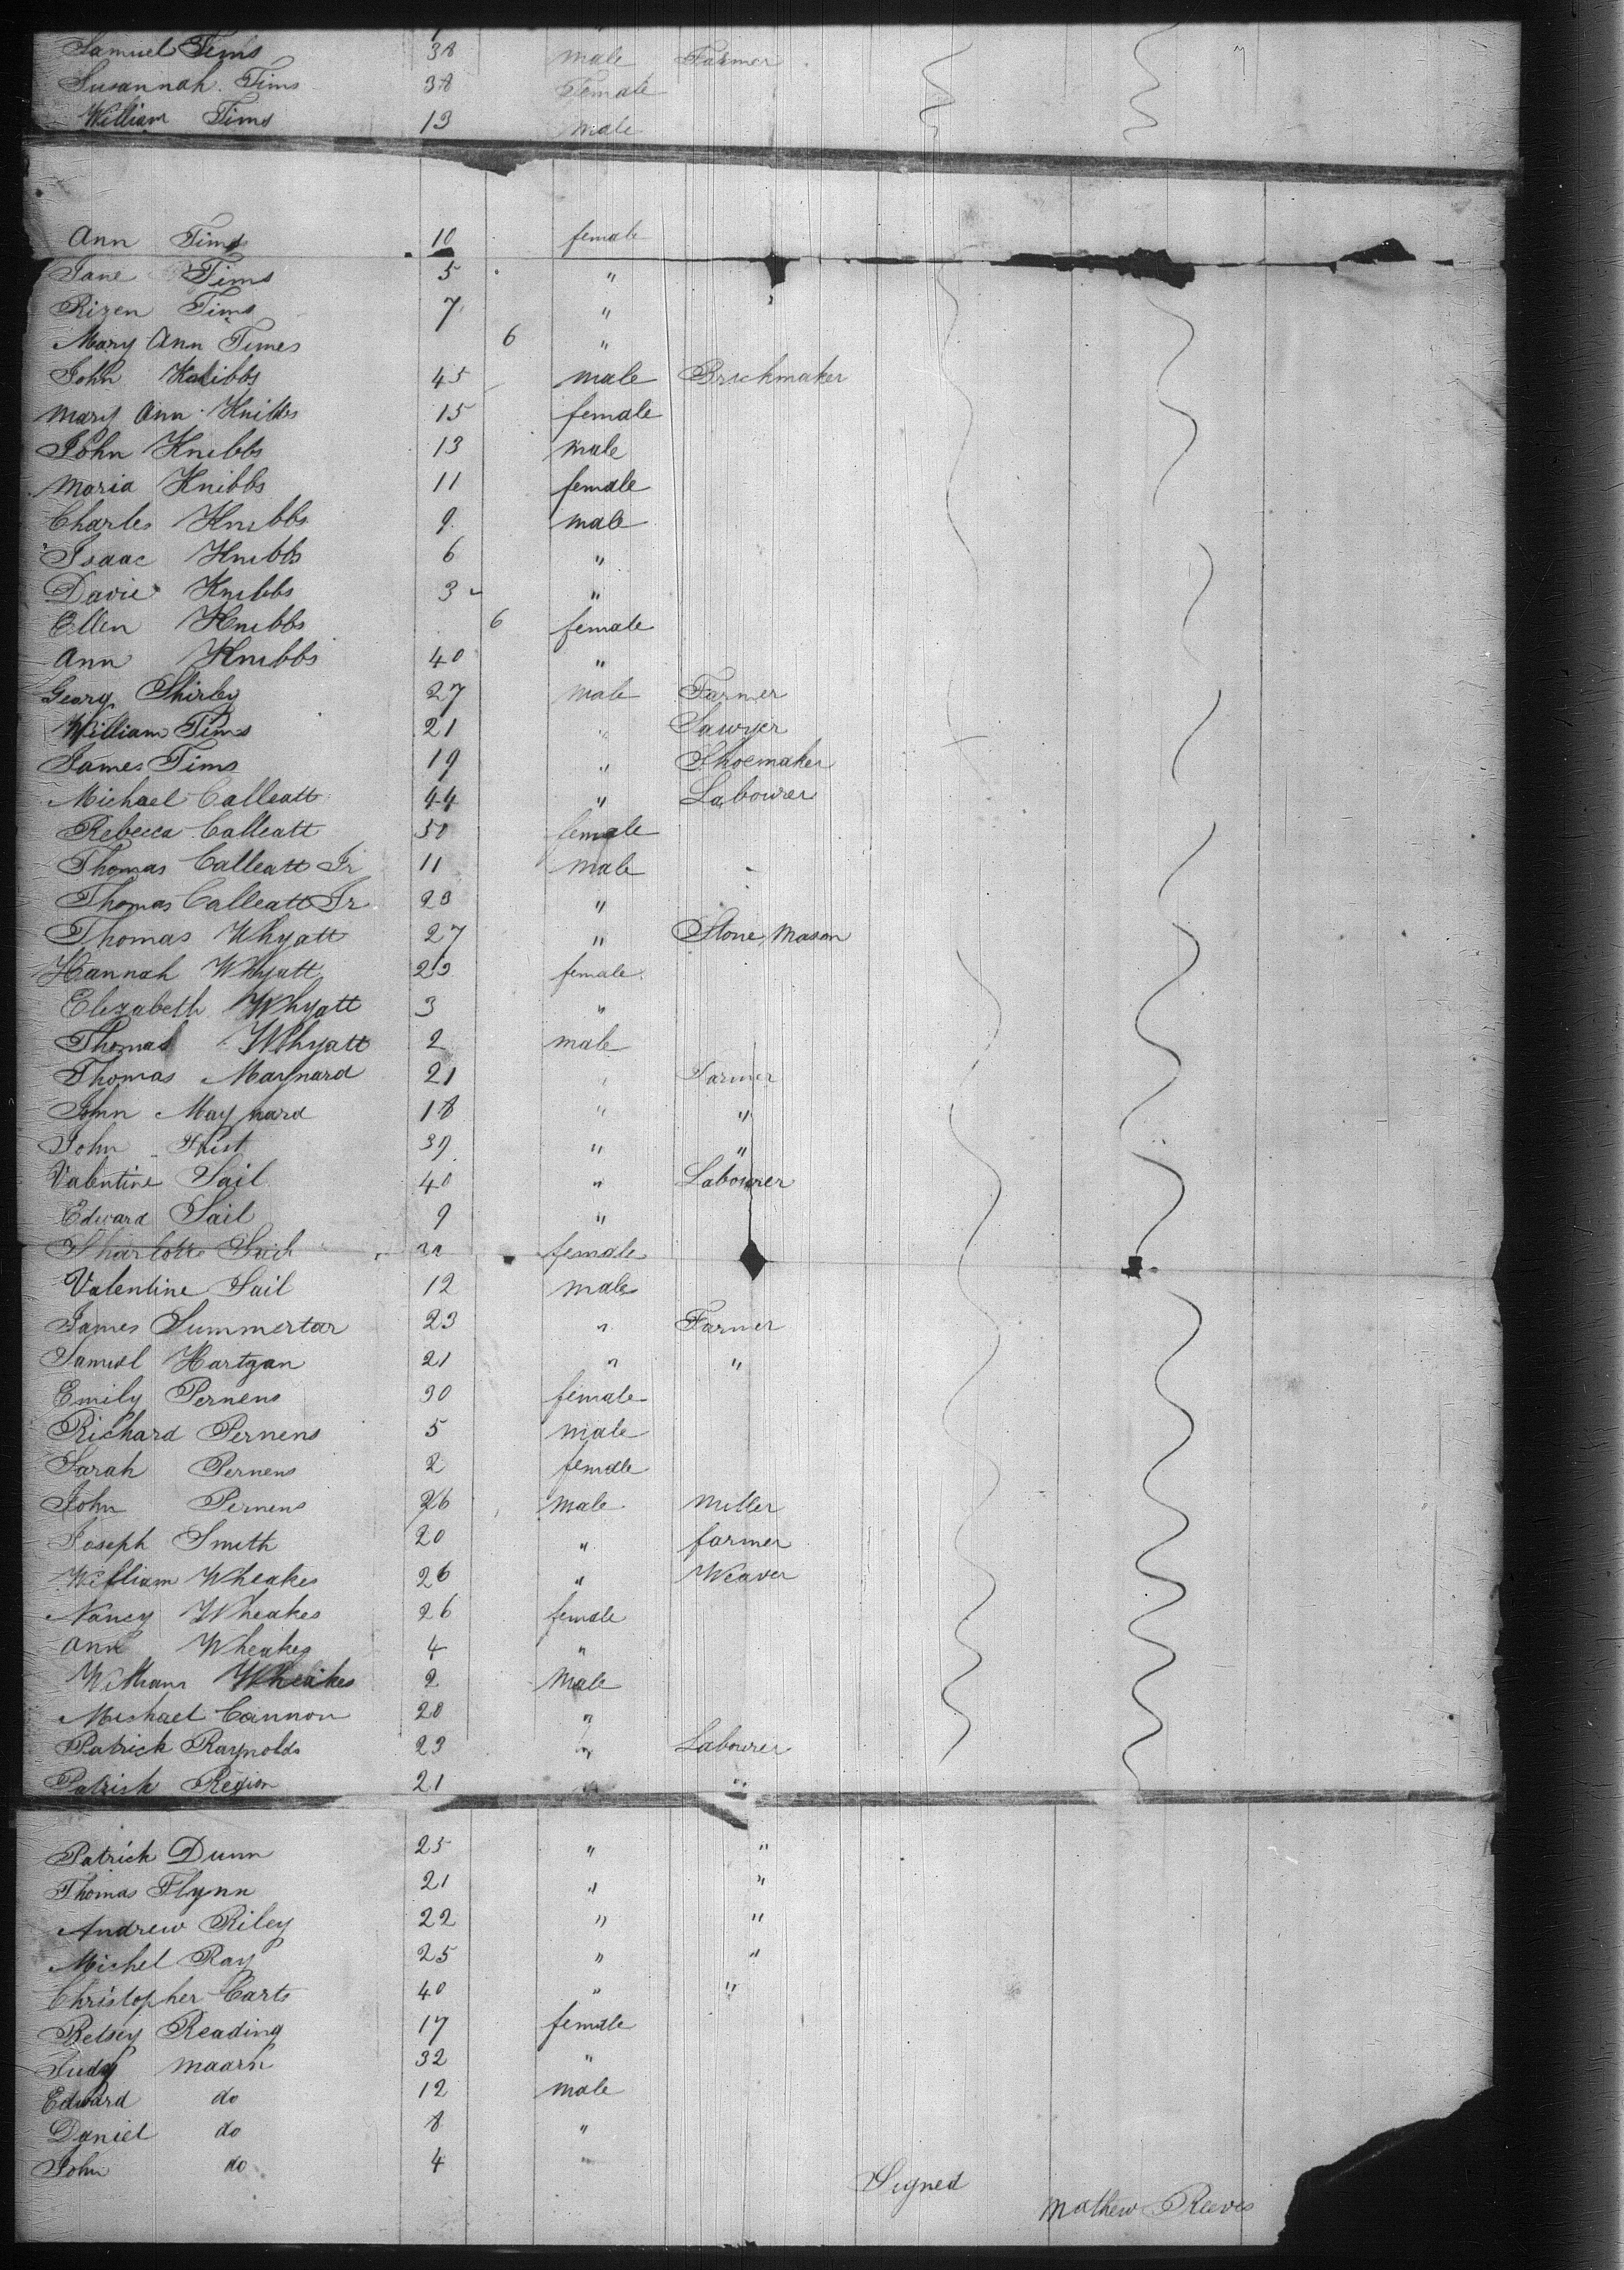 Samuel Tims 38 male Farmer
Susannah Tims 38 Female
William Tims 13 male
Ann Tims 10 female
Jane Tims 5 "
Rizen Tims 7 "
Mary Ann Times 6 "
John Knibbs 45 male Brickmaker
Mary Ann Knibbs 15 female
John Knibbs 13 male
Maria Knibbs 11 female
Charles Knibbs 9 male
Isaac Knibbs 6 "
Davie Knibbs 3 "
Ellen Knibbs 6 female
Ann Knibbs 40 "
Georg Shirley 27 male Farmer
William Tims 21 " Sawyer
James Tims 19 " Shoemaker
Michael Calleatt 44 " Labourer
Rebecca Calleatt 50 female
Thomas Calleatt Jr 11 male
Thomas Calleatt Jr 23 "
Thomas Whyatt 27 " Stone Mason
Hannah Whyatt 23 female
Elizabeth Whyatt 3 "
Thomas Whyatt 2 male
Thomas Maynard 21 " Farmer
John Maynard 18 " "
John 39 " "
Valentine Sail 40 " Labourer
Edward Sail 9 "
Sharlotte Sail female
Valentine Sail 12 male
James Summertar 23 " Farmer
Samuel Hartgan 21 " "
Emily Pernens 30 female
Richard Pernens 5 male
Sarah Pernens 2 female
John Pernens 26 male Miller
Joseph Smith 20 " farmer
William Wheakes 26 " Weaver
Nancy Wheakes 26 female
Ann Wheakes 4 "
William Wheakes 2 Male
Mishael Cannon 20 "
Patrick Raynolds 23 " Labourer
Patrick Region 21 " "
Patrick Dunn 25 " "
Thomas Flynn 21 " "
Andrew Riley 22 " "
Michel Ray 25 " "
Christopher Carts 40 " "
Betsey Reading 17 female
Judy Maarn 32 "
Edward do 12 male
Daniel do 8 "
John do 4 "
Signed
Mathew Reeves